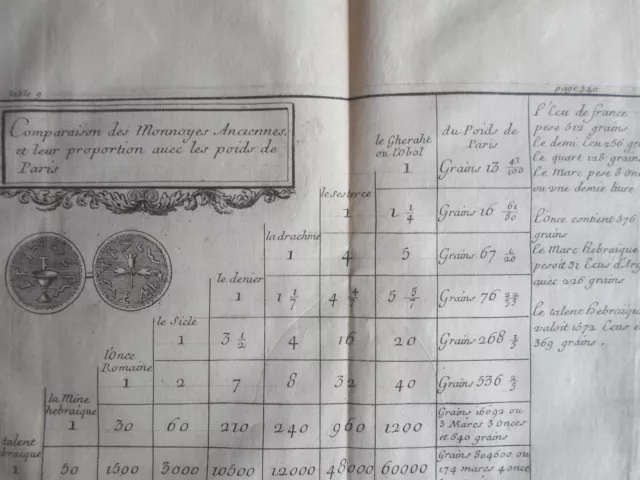 table 9
page 240
Comparaison des Monnoyes Anciennes,
et leur proportion avec les poids de
Paris
le Gheraht
ou l'Obol
1
du Poids de
Paris
Grains 13 41/100
le sesterce
1
1 1/4
Grains 16 61/80
la drachme
1
4
5
Grains 67 1/20
le denier
1
1 1/7
4 4/7
5 5/7
Grains 76 22/35
le Sicle
1
3 1/2
4
16
20
Grains 268 1/5
l'Once
Romaine
1
2
7
8
32
40
Grains 536 2/5
la Mine
hebraique
1
30
60
210
240
960
1200
Grains 16092 ou
3 Marcs 3 onces
et 540 grains
talent
braique
1
50
1500
3000
10500
12000
48000
60000
Grains 804600 ou
174 marcs 4 once
L'Ecu de france
pese 512 grains
le demi Ecu 256 gra
le quart 128 grains
le Marc pese 8 Onc
ou une demie liure
L'once contient 576
grains
le Marc Hebraique
pesoit 31 Ecus d'Arg
avec 226 grains
le talent hebraique
valoit 1572 Ecus e
369 grains.